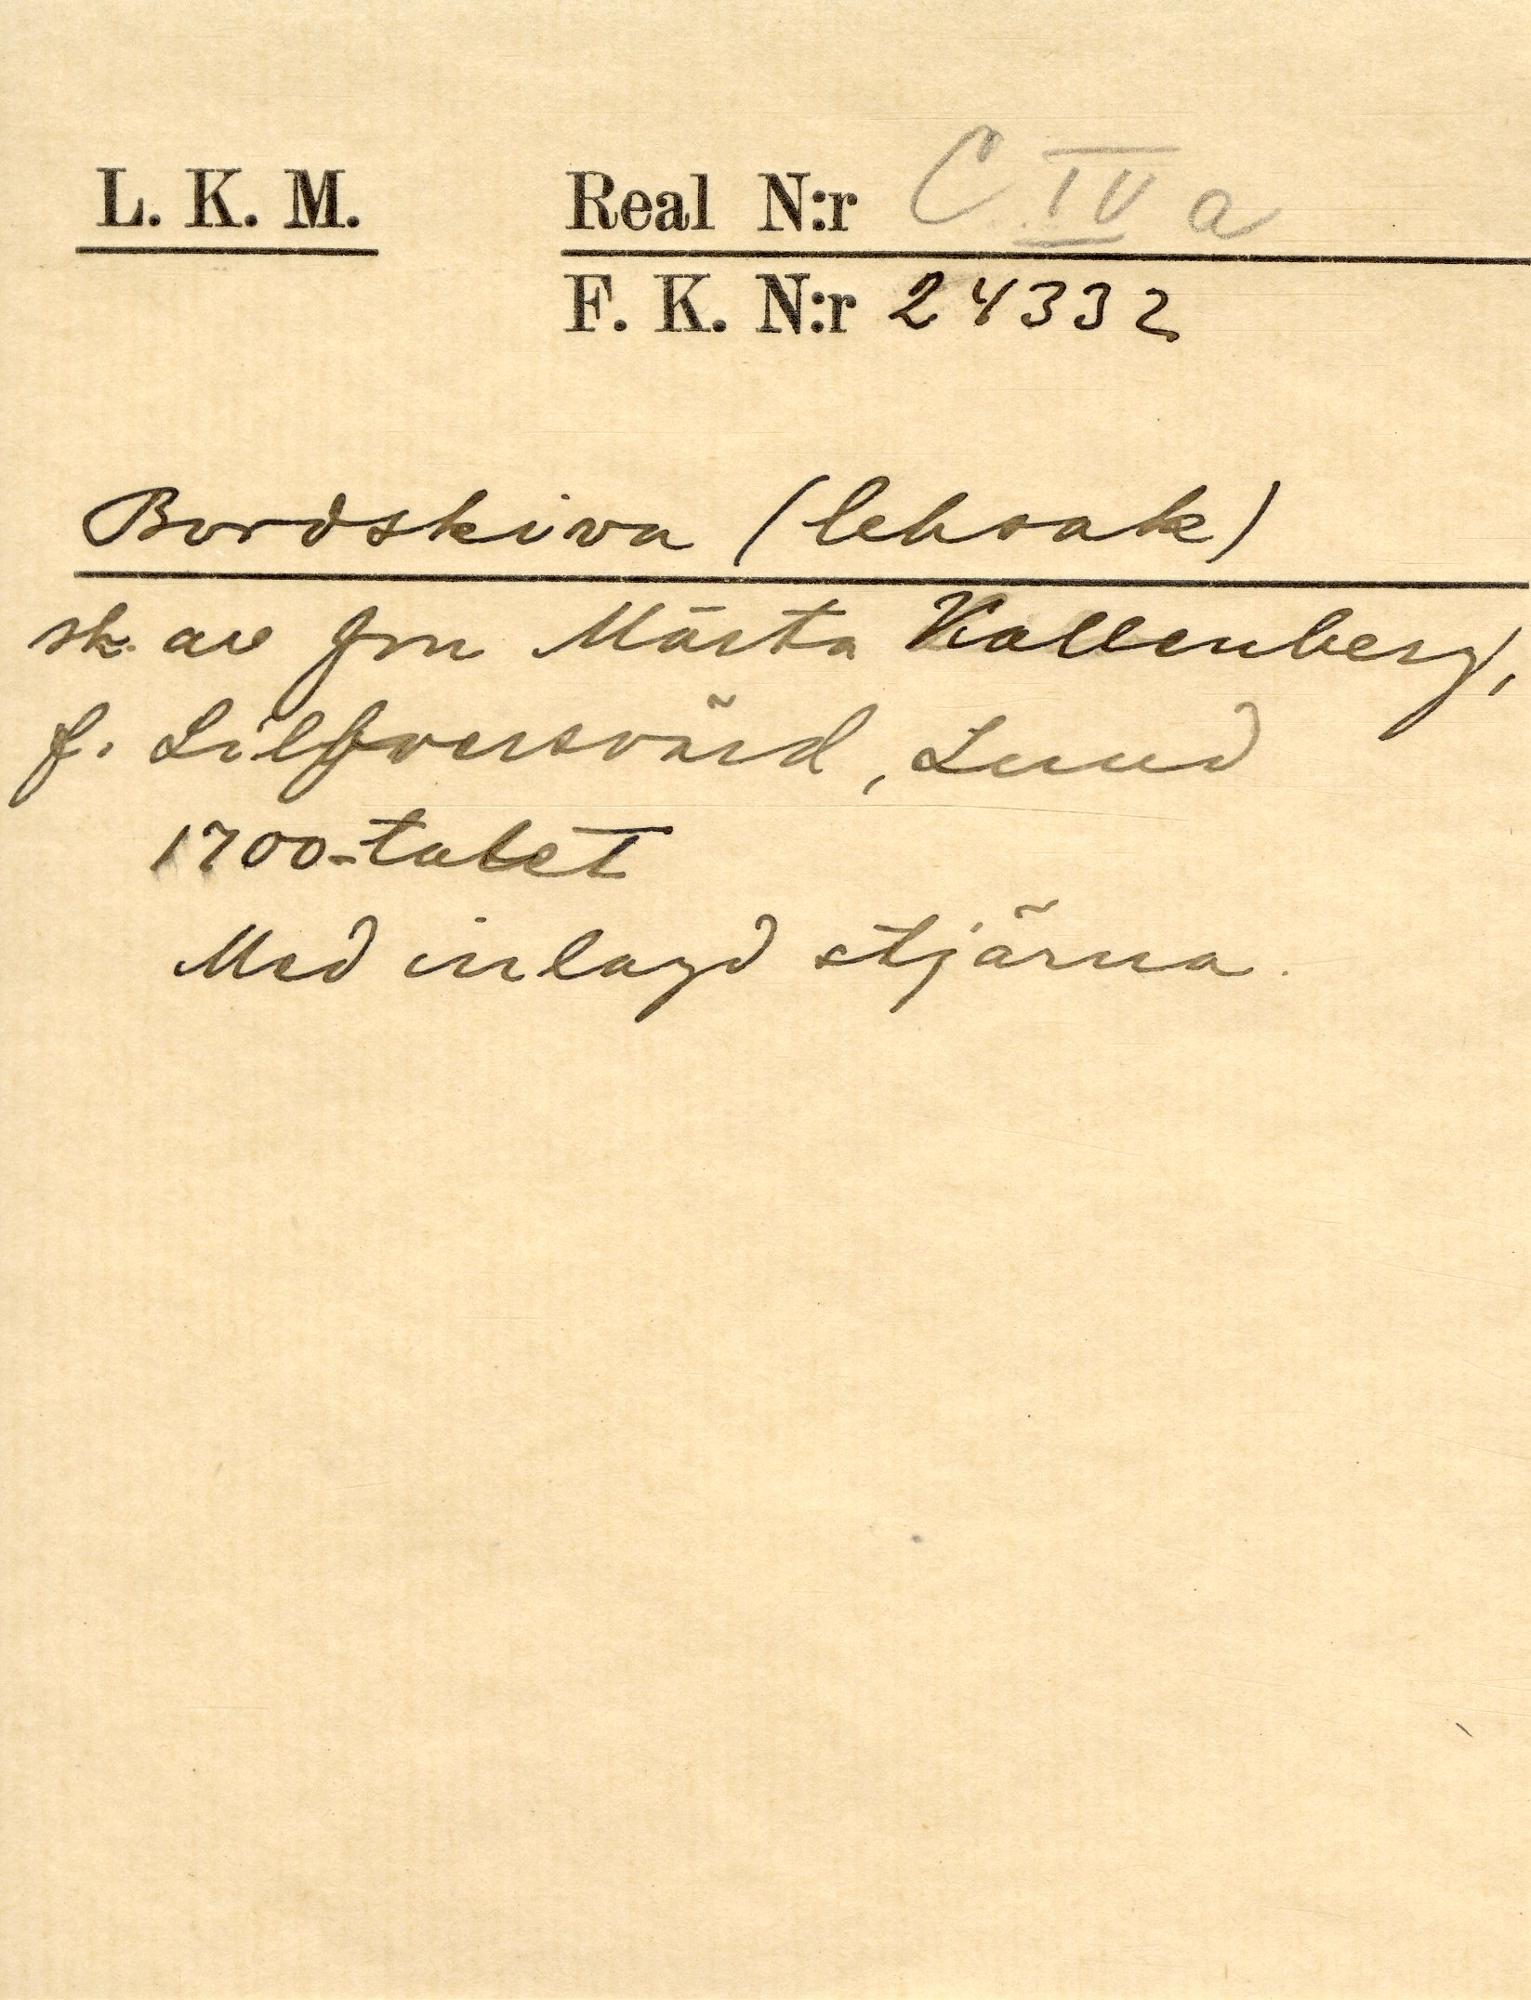 L. K. M. Real N:r C IV a
F. K. N:r 24332
Bordskiva (leksak)
sk. av fru Märta Kallenberg,
f. Lilfversvärd, Lund
1700-talet
Med inlagd stjärna.